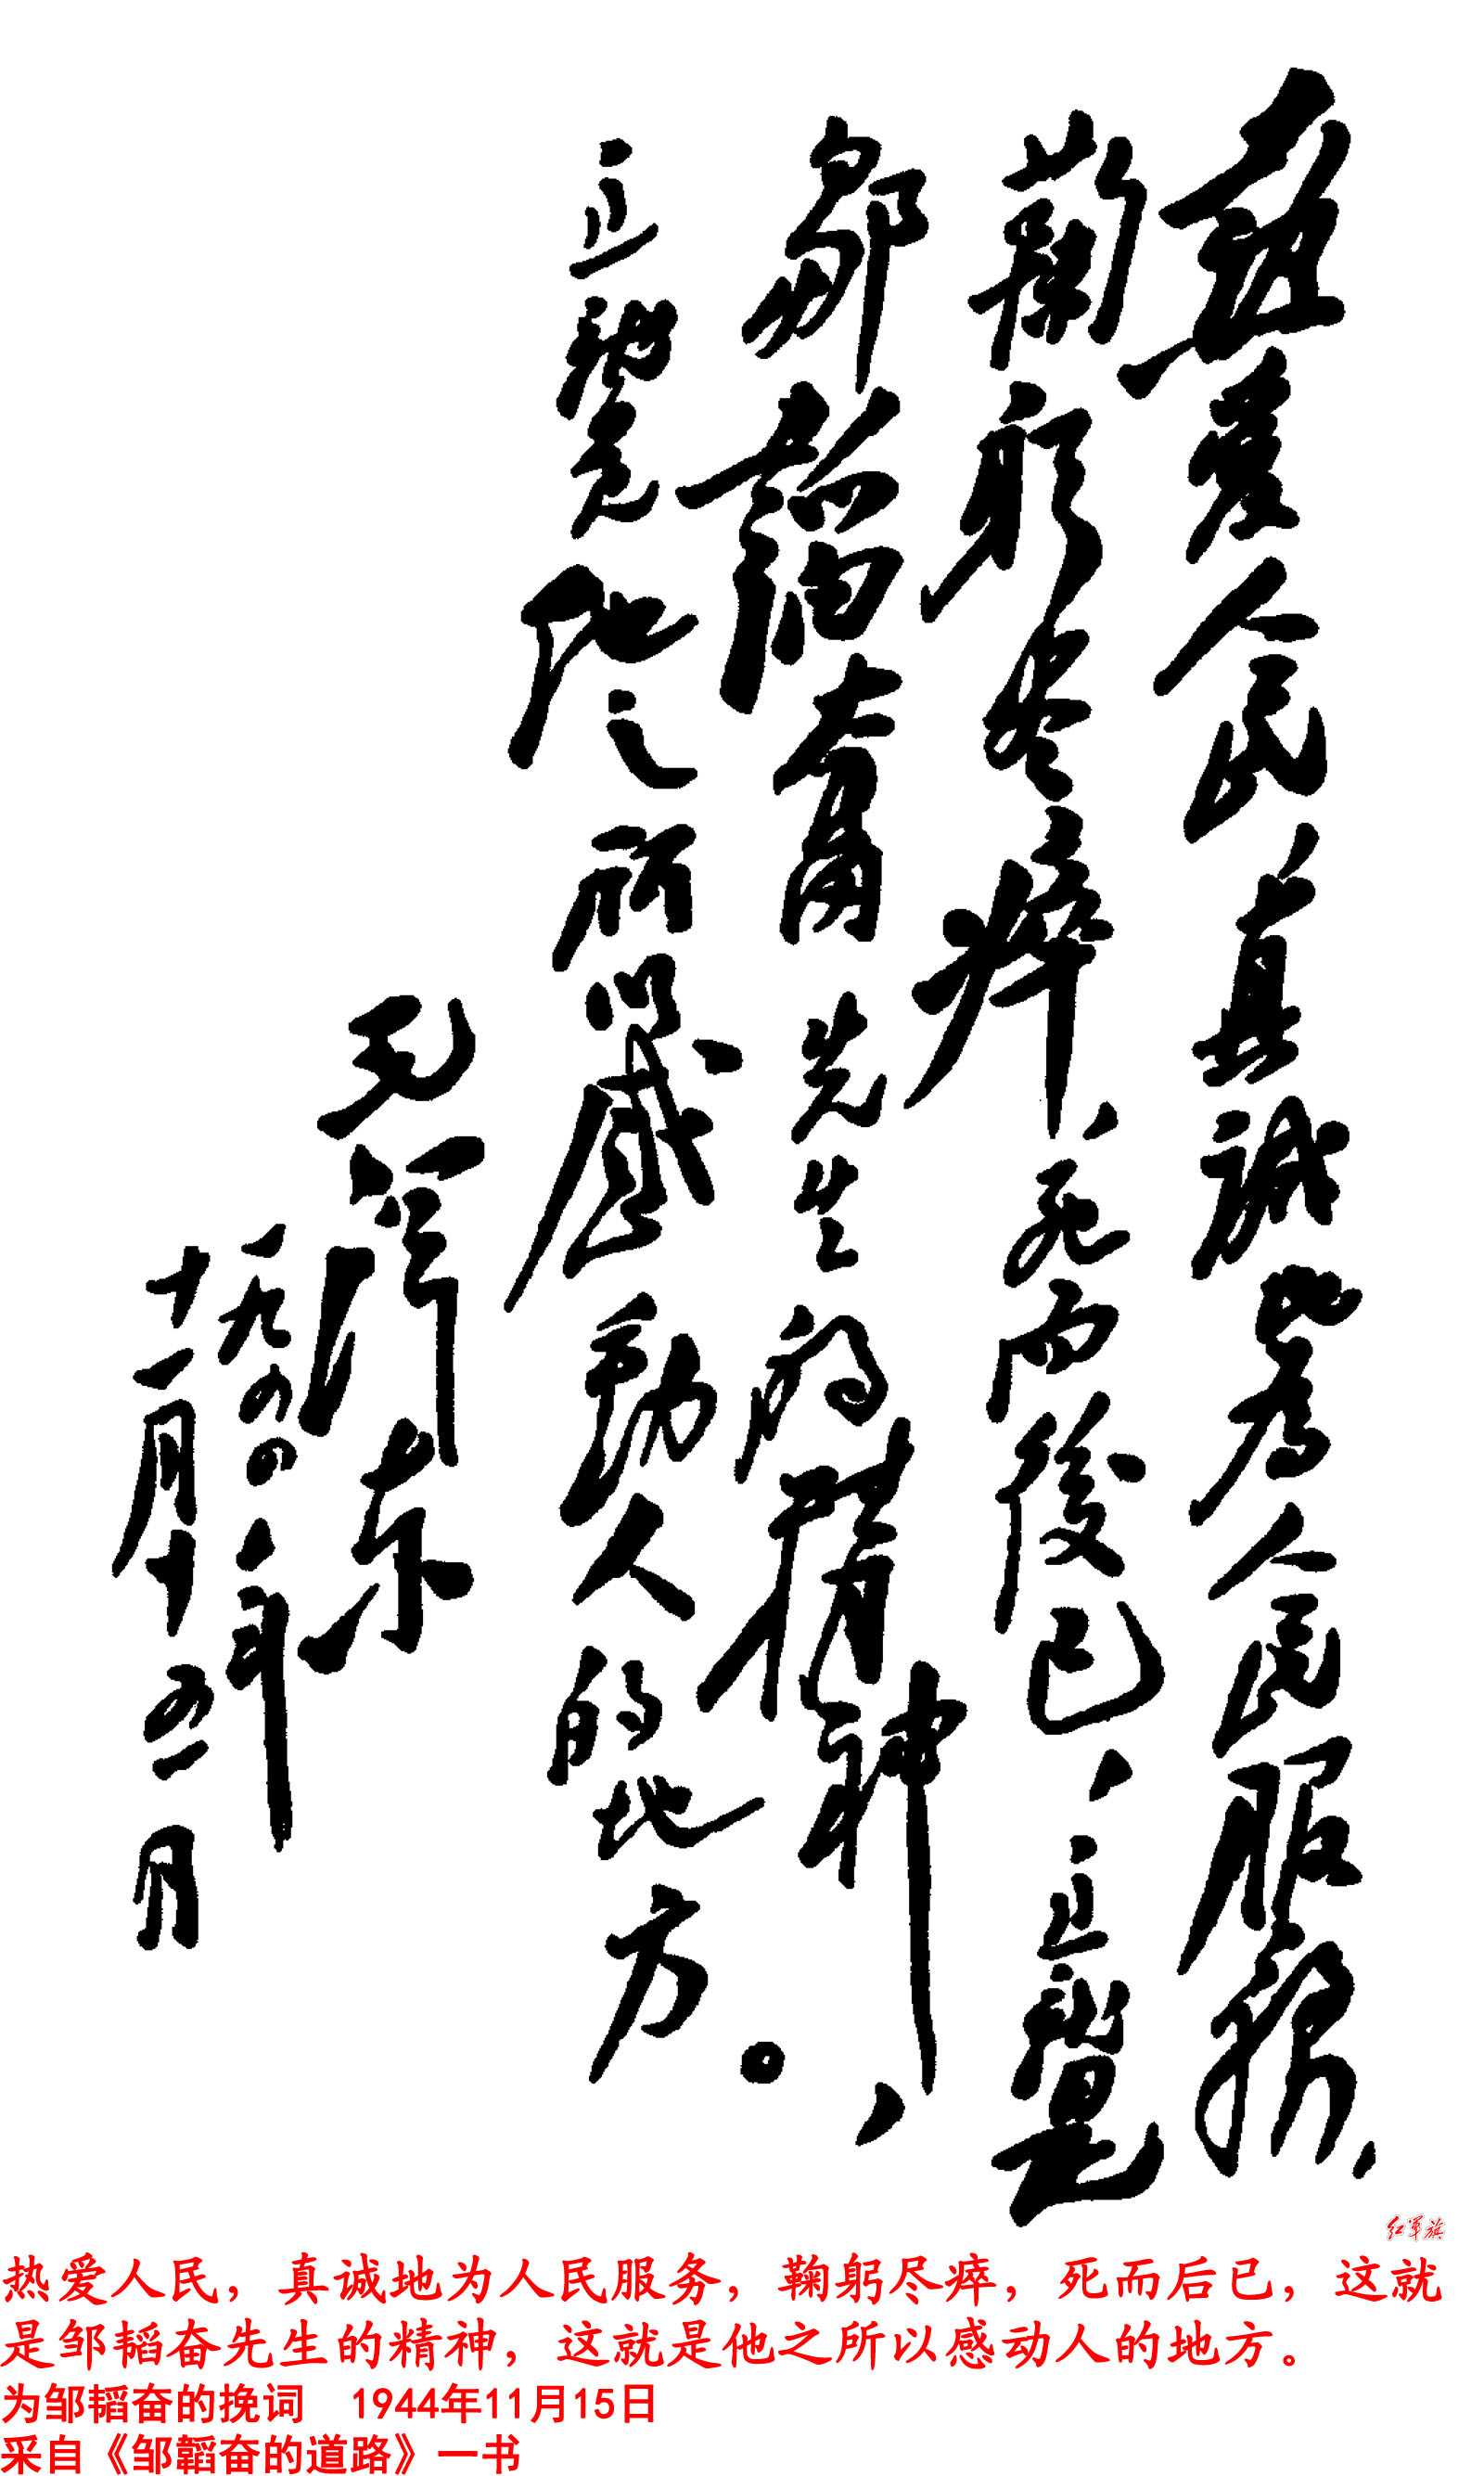 热爱人民、真诚地为人民服務、
鞠躬尽瘁、死而後已、这就是
邹韬奋先生的精神、
这就是他之所以感动人的地方。
毛泽东
一九四四年
十一月十五日
红军旗
热爱人民，真诚地为人民服务，鞠躬尽瘁，死而后已，这就
是邹韬奋先生的精神，这就是他之所以感动人的地方。
为邹韬奋的挽词 1944年11月15日
采自《邹韜奋的道路》一书